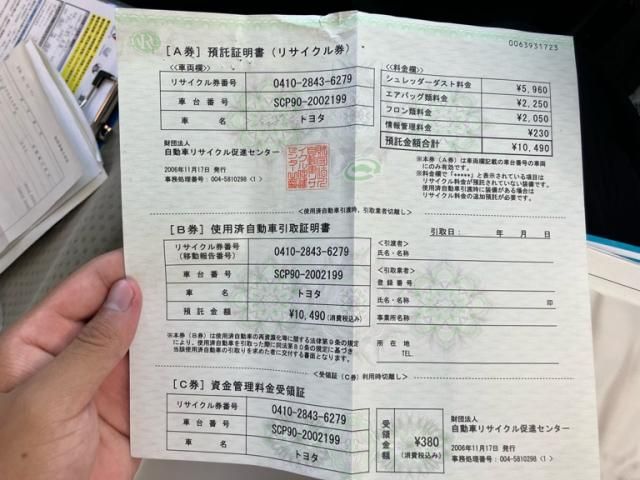 0063931723
[A券] 預託証明書(リサイクル券)
<<車両欄>>
リサイクル券番号 0410-2843-6279
車台番号 SCP90-2002199
車名 トヨタ
<<料金欄>>
シュレッダーダスト料金 ¥5,960
エアバッグ類料金 ¥2,250
フロン類料金 ¥2,050
情報管理料金 ¥230
預託金額合計 ¥10,490
財団法人
自動車リサイクル促進センター
2006年11月17日 発行
事務処理番号:004-5810298 <1>
※本券(A券)は車両欄記載の車台番号の車両
にのみ有効です。
※料金欄で「*****」と表示されている項目は
リサイクル料金が預託されていない装備です。
使用済自動車引渡時に装備がある場合は
リサイクル料金の追加預託が必要です。
<使用済自動車引渡時、引取業者切離し>
[B券] 使用済自動車引取証明書
引取日: 年 月 日
リサイクル券番号
(移動報告番号) 0410-2843-6279
車台番号 SCP90-2002199
車名 トヨタ
預託金額 ¥10,490 (消費税込み)
<引渡者>
氏名・名称
<引取業者>
登録番号
氏名・名称 印
事業所名
所在地
TEL.
※本券(B券)は使用済自動車の再資源化等に関する法律第9条の規定
により、使用済自動車を引取った際に同法第80条の規定に基づき
当該使用済自動車の引取りを求めた者に交付する書面となります。
<受領証(C券)利用時切離し>
[C券] 資金管理料金受領証
リサイクル券番号 0410-2843-6279
車台番号 SCP90-2002199
車名 トヨタ
受領金額 ¥380
(消費税込み)
財団法人
自動車リサイクル促進センター
2006年11月17日 発行
事務処理番号:004-5810298 <1>